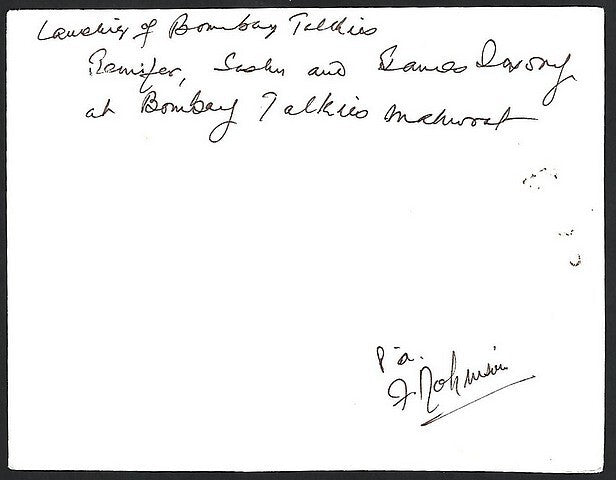 Launching of Bombay Talkies
Jennifer, Sashi and James Ivory
at Bombay Talkies mahurat
P.a.